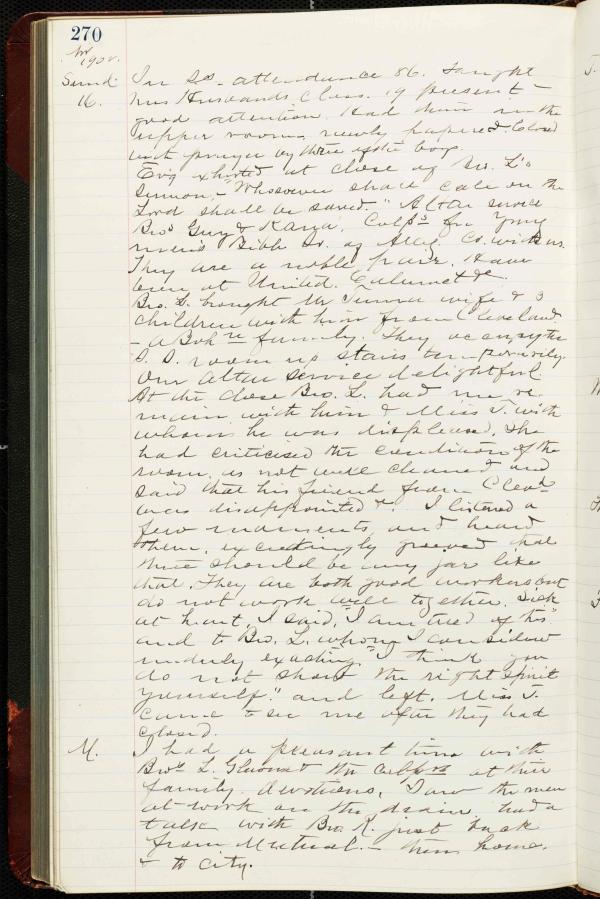 270
Nov 1902.
Sund. 16.
In S.S. attendance 86. Taught
Mrs Husbands Class. 19 present –
good attention. Had them in the
upper room, newly papered. Closed
with prayer by three of the boys.
Ev'g exhorted at close of Bro. L's
sermon, – "Whosoever shall call on the
Lord shall be saved." Altar service
Bros Guy & Kana, Colps for Young
men's Bible So. of Alleg. Co. with us.
They are a noble pair. Have
been at United, Calumet &c.
Bro. L. brought Mr wife & 3
children with him from Cleveland
– a Bohn family. They occupy the
S. S. room up stairs temporarily.
Our altar service delightful.
At the close Bro. L. had me re
main with him & Miss T. with
whom he was displeased. She
had criticised the condition of the
room, as not well cleaned and
said that his friend from Cleved
was disappointed &c. I listened a
few moments and heard
them, exceedingly grieved that
there should be any jar like
that. They are both good workers but
do not work well together. Sick
at heart, I said, "I am tired of this"
and to Bro. L. whom I consider
unduly exacting "I think you
do not show the right spirit
yourself." and left. Miss T.
came to see me after they had
closed.
M.
I had a pleasant time with
Bros L. & the Colprs at their
family devotions. Saw the men
at work on the drain, had a
talk with Bro. K. just back
from Mutual. – then home.
& to city.